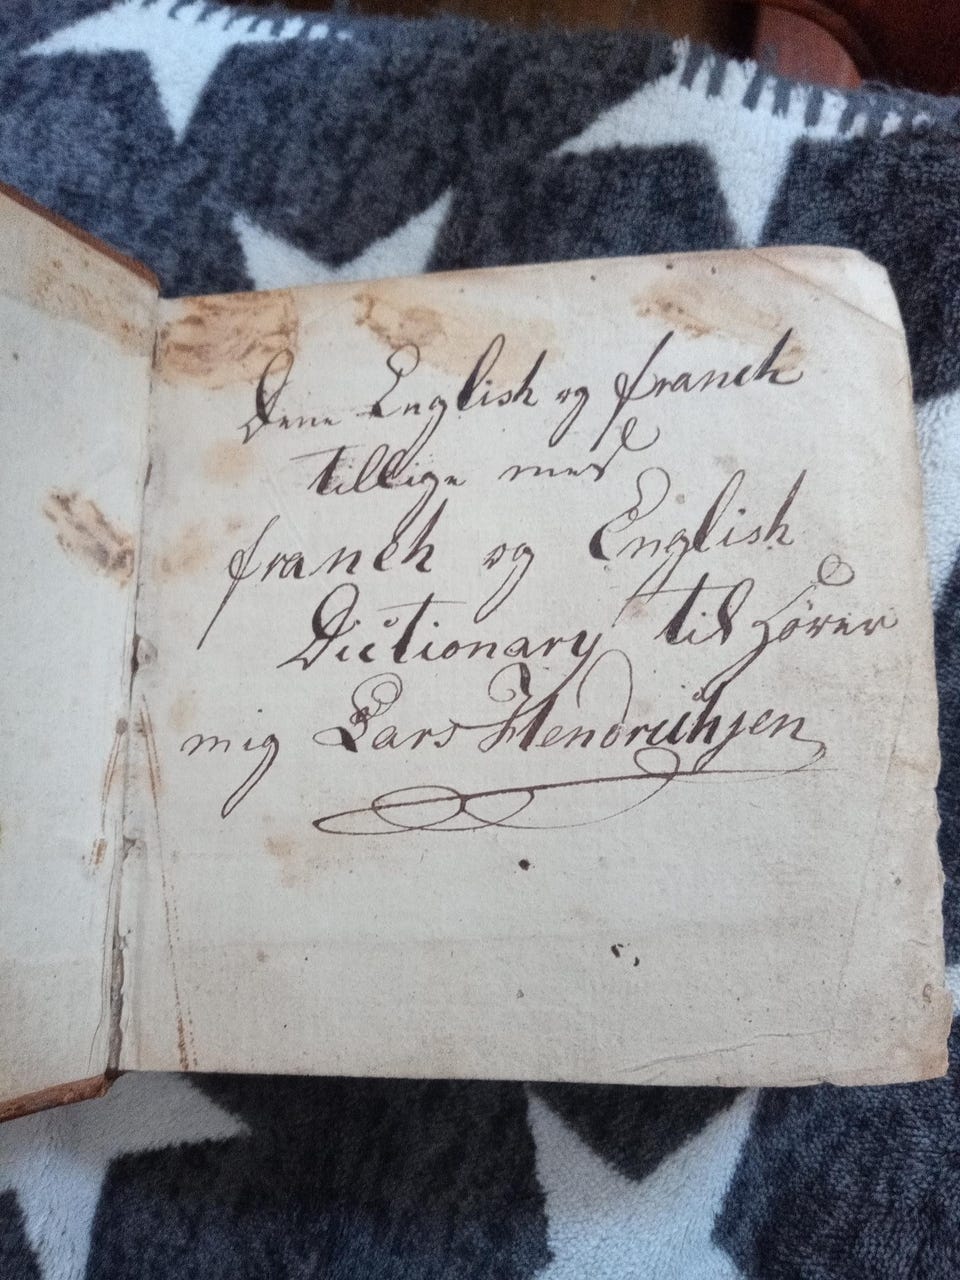 Dene English og franch
tillige med
franch og English
Dictionary til hører
mig Lars Hendrichsen